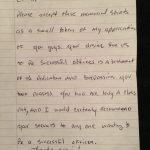 Please accept these monument shirts
as a small token of my appreciation
of you guys. Your desire for us
to be successful officers is a testament
of the dedication and
you possess. You two are truly A class
and I would certainly recommend
your services to any one wanting to
be a successful officer.